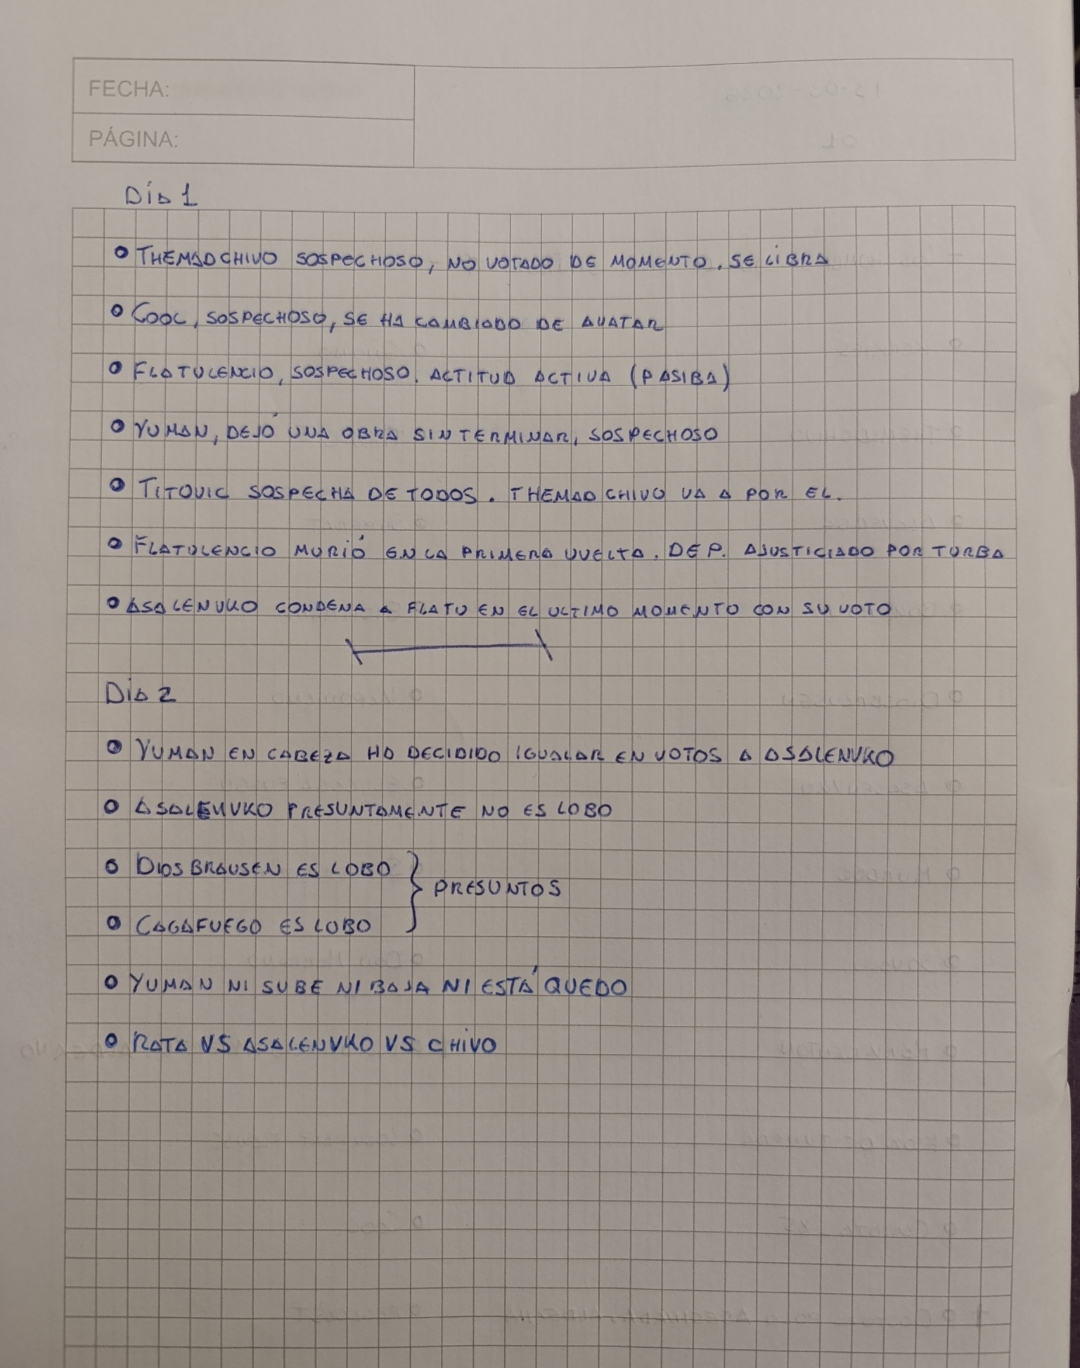 FECHA:
PÁGINA:
Día 1
THEMADCHIVO SOSPECHOSO, NO VOTADO DE MOMENTO. SE LIBRA
COOL, SOSPECHOSO, SE HA CAMBIADO DE AVATAR
FLATULENCIO, SOSPECHOSO, ACTITUD ACTIVA (PASIBA)
YUMAN, DEJÓ UNA OBRA SIN TERMINAR, SOSPECHOSO
TITOVIC SOSPECHA DE TODOS. THEMADCHIVO VA A POR EL.
FLATULENCIO MURIÓ EN LA PRIMERA VUELTA. DEP. AJUSTICIADO POR TURBA
ASALENVKO CONDENA A FLATU EN EL ULTIMO MOMENTO CON SU VOTO
Día 2
YUMAN EN CABEZA HA DECIDIDO IGUALAR EN VOTOS A ASALENVKO
ASALENVKO PRESUNTAMENTE NO ES LOBO
DIOSBRAUSEN ES LOBO
PRESUNTOS
CAGAFUEGO ES LOBO
YUMAN NI SUBE NI BAJA NI ESTÁ QUEDO
RATA VS ASALENVKO VS CHIVO